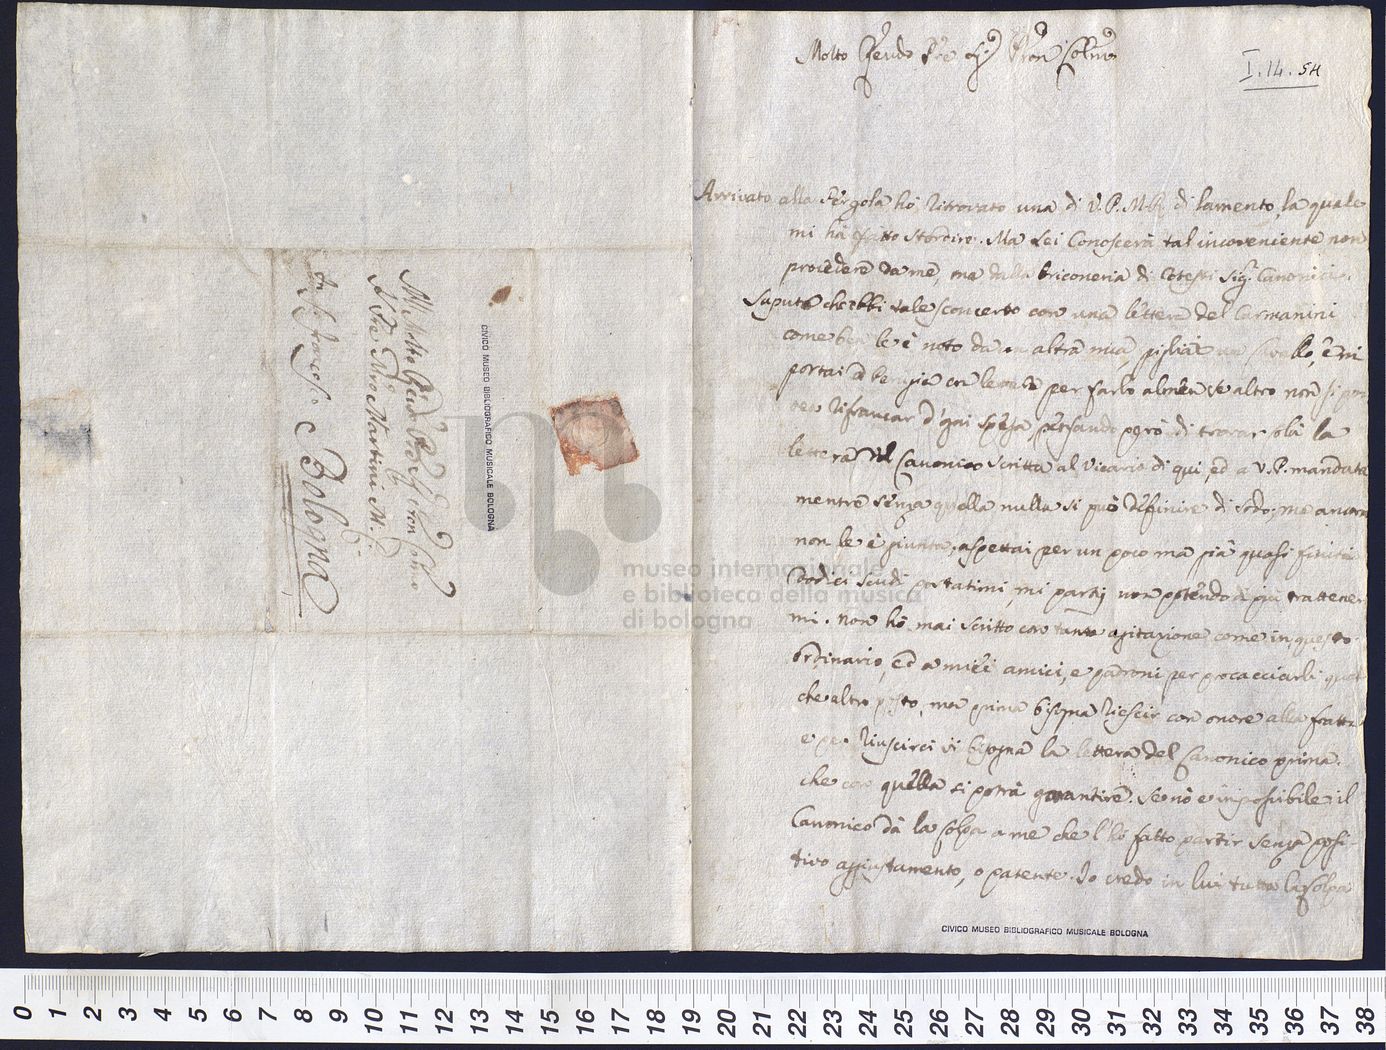 Molto Rendo Pre Sigr Pron Colmo
I.14.54
Arrivato alla Pergola hò ritrovato una di V.P.M.R. di lamento, la quale
mi hà fatto stordire. Ma Lei Conoscerà tal inconveniente non
procedere da me, ma dalla briconeria di Cotesti Sigri Canonici.
Saputo che ebbi tale sconcerto con una lettera del Carmanini
come ben le è noto da un altra mia, pigliai un cavallo, e mi
portai a con per farlo almen se altro non si
rifrancar d'ogni spesa pensando però di trovar colà la
lettera del Canonico scritta al Vicario di qui, ed a V.P. mandata
mentre senza quella nulla si può definire di sodo; ma ancora
non le è giunta; aspettai per un poco ma già quasi finiti
dodici scudi portatimi, mi partij non potendo di più trattener
mi. Non hò mai scritto con tanta agitazione come in questo
ordinario, ed a miei amici, e padroni per procacciarli qual
che altro posto, ma prima bisogna riescir con onore alla fratta
e per riuscirci vi bisogna la lettera del Canonico prima.
che con quella si potrà garantire. Se nò è impossibile; il
Canonico dà la colpa a me che l'hò fatto partir senza posi-
tivo aggiustamento, o patente. Io credo in lui tutta la colpa
CIVICO MUSEO BIBLIOGRAFICO MUSICALE BOLOGNA
Al Molto Rendo Pre Sigr Pron Colmo
Il Pre Mro Martini M.
In S. Franco
Bologna
CIVICO MUSEO BIBLIOGRAFICO MUSICALE BOLOGNA
museo internazionale
e biblioteca della musica
di bologna
0 1 2 3 4 5 6 7 8 9 10 11 12 13 14 15 16 17 18 19 20 21 22 23 24 25 26 27 28 29 30 31 32 33 34 35 36 37 38